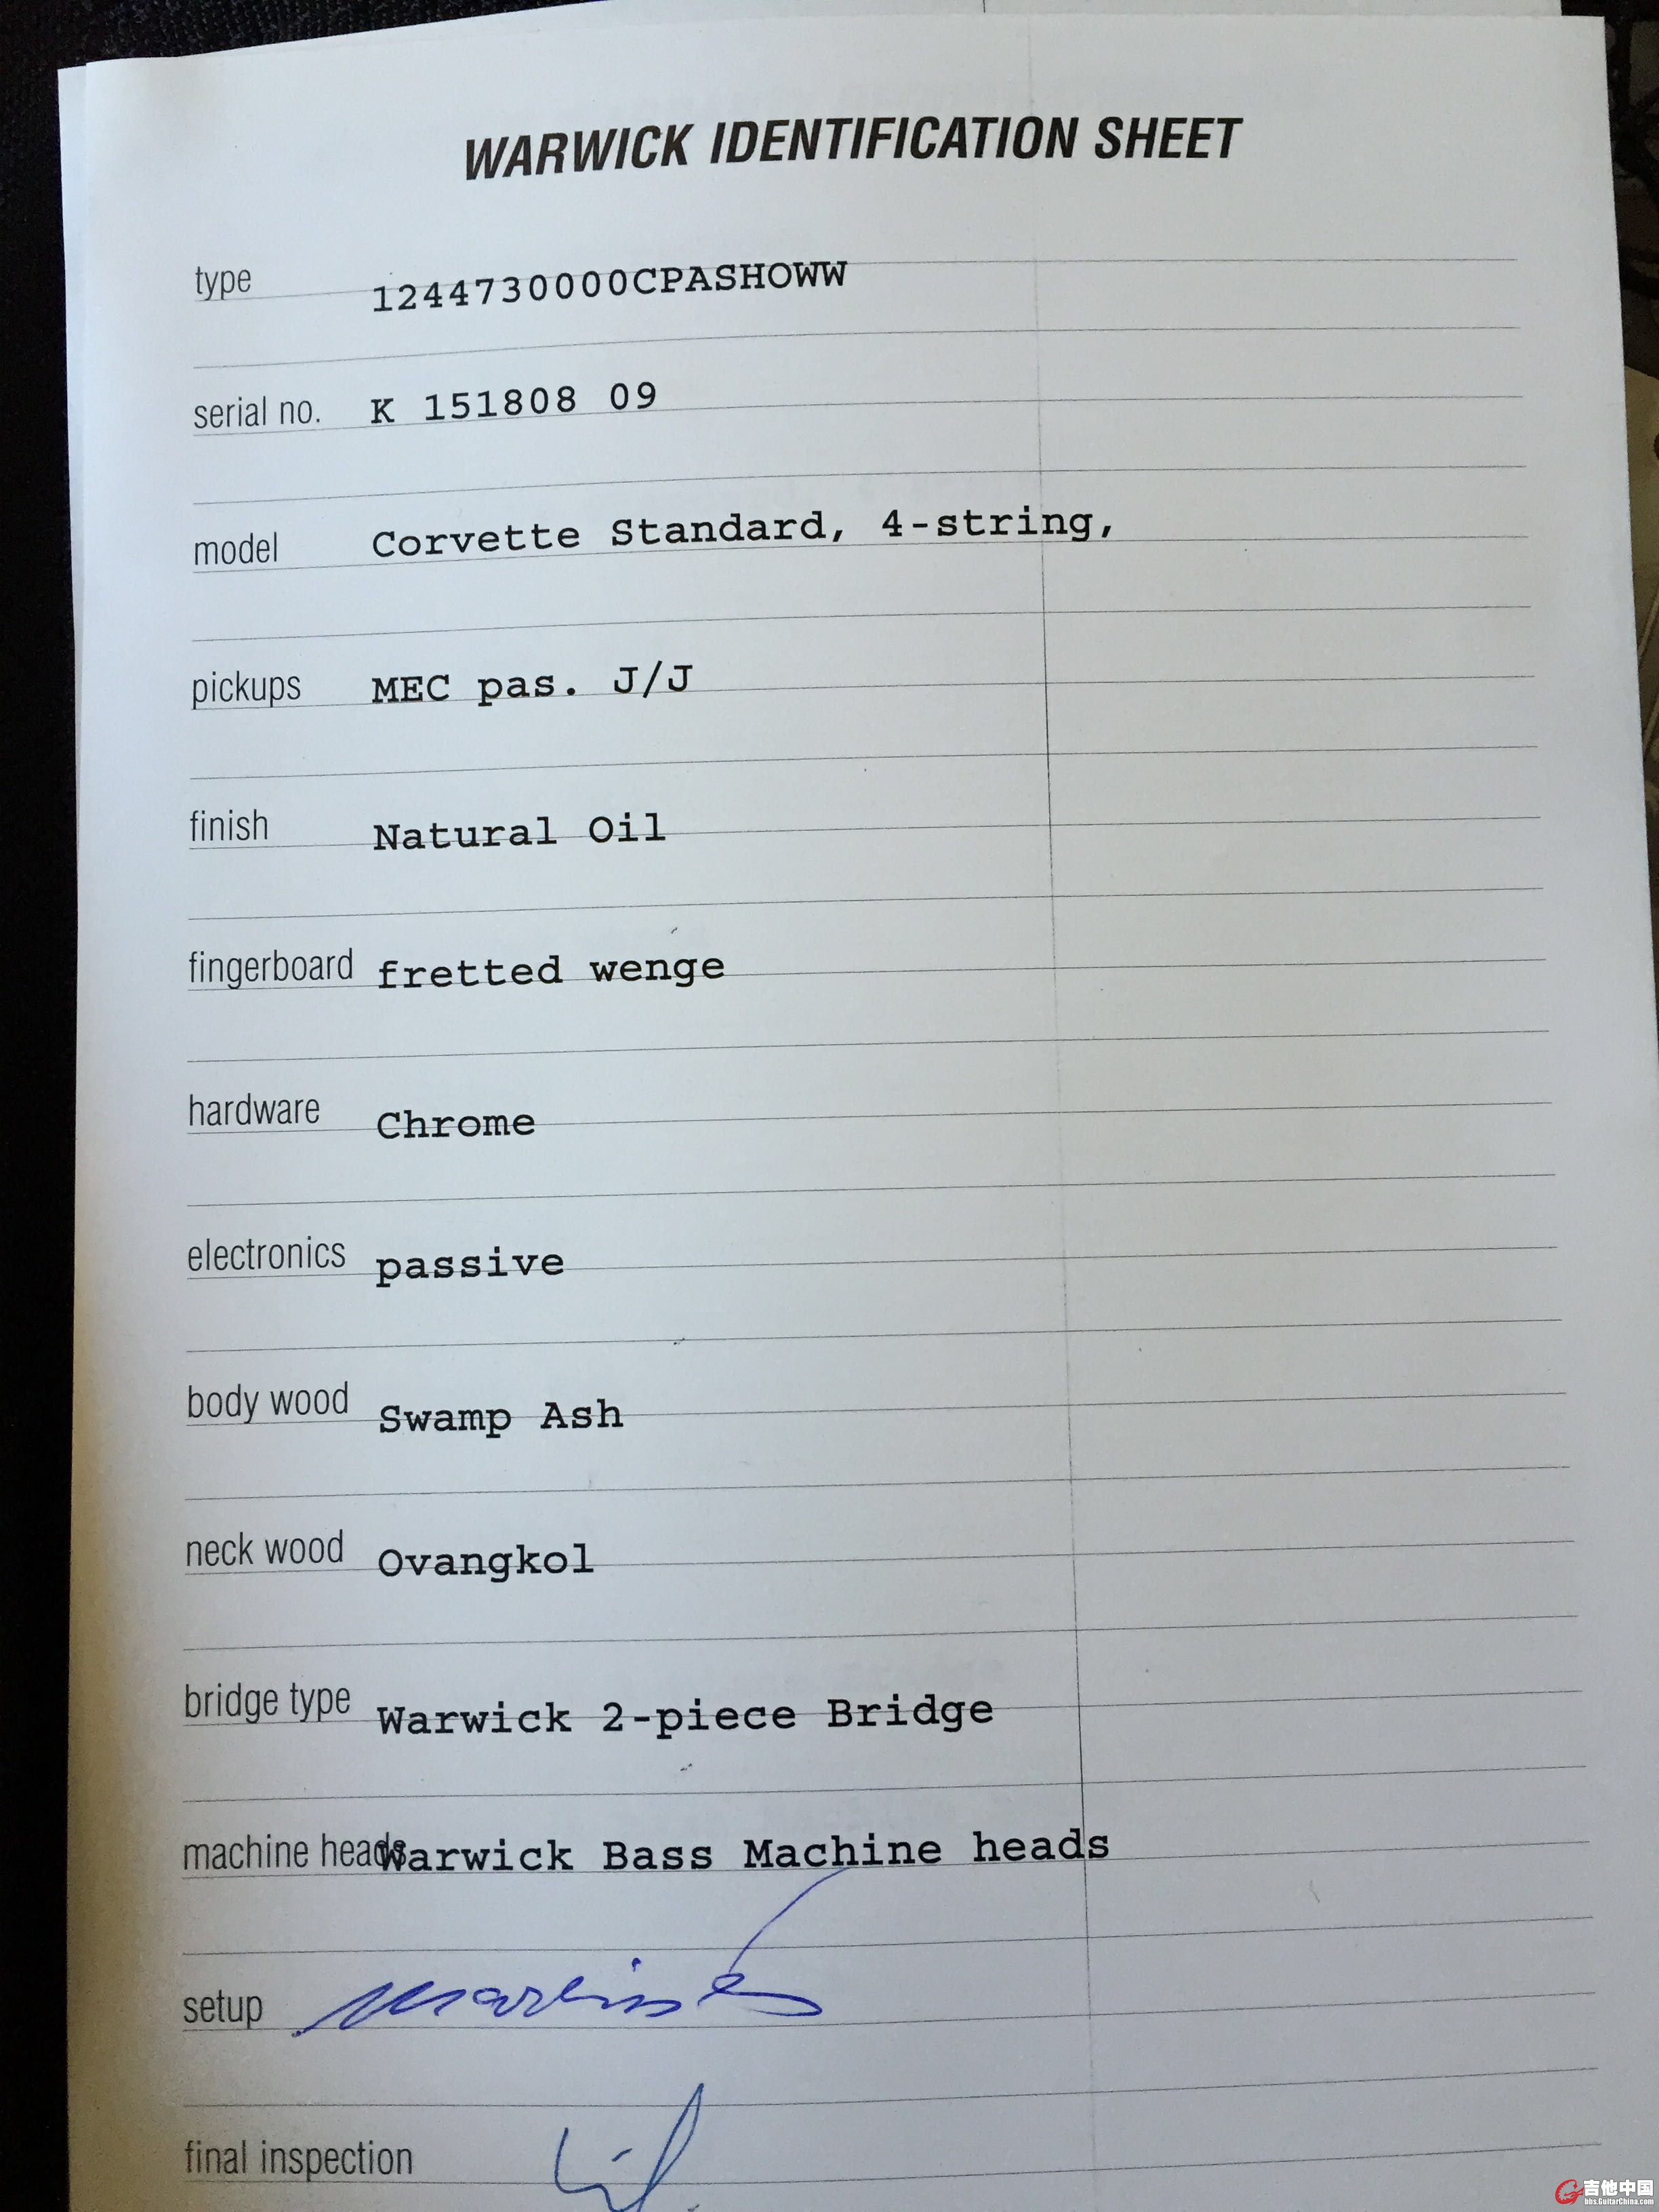 WARWICK IDENTIFICATION SHEET
type 1244730000CPASHOWW
serial no. K 151808 09
model Corvette Standard, 4-string,
pickups MEC pas. J/J
finish Natural Oil
fingerboard fretted wenge
hardware Chrome
electronics passive
body wood Swamp Ash
neck wood Ovangkol
bridge type Warwick 2-piece Bridge
machine heads Warwick Bass Machine heads
setup
final inspection
吉他中国
bbs.GuitarChina.com